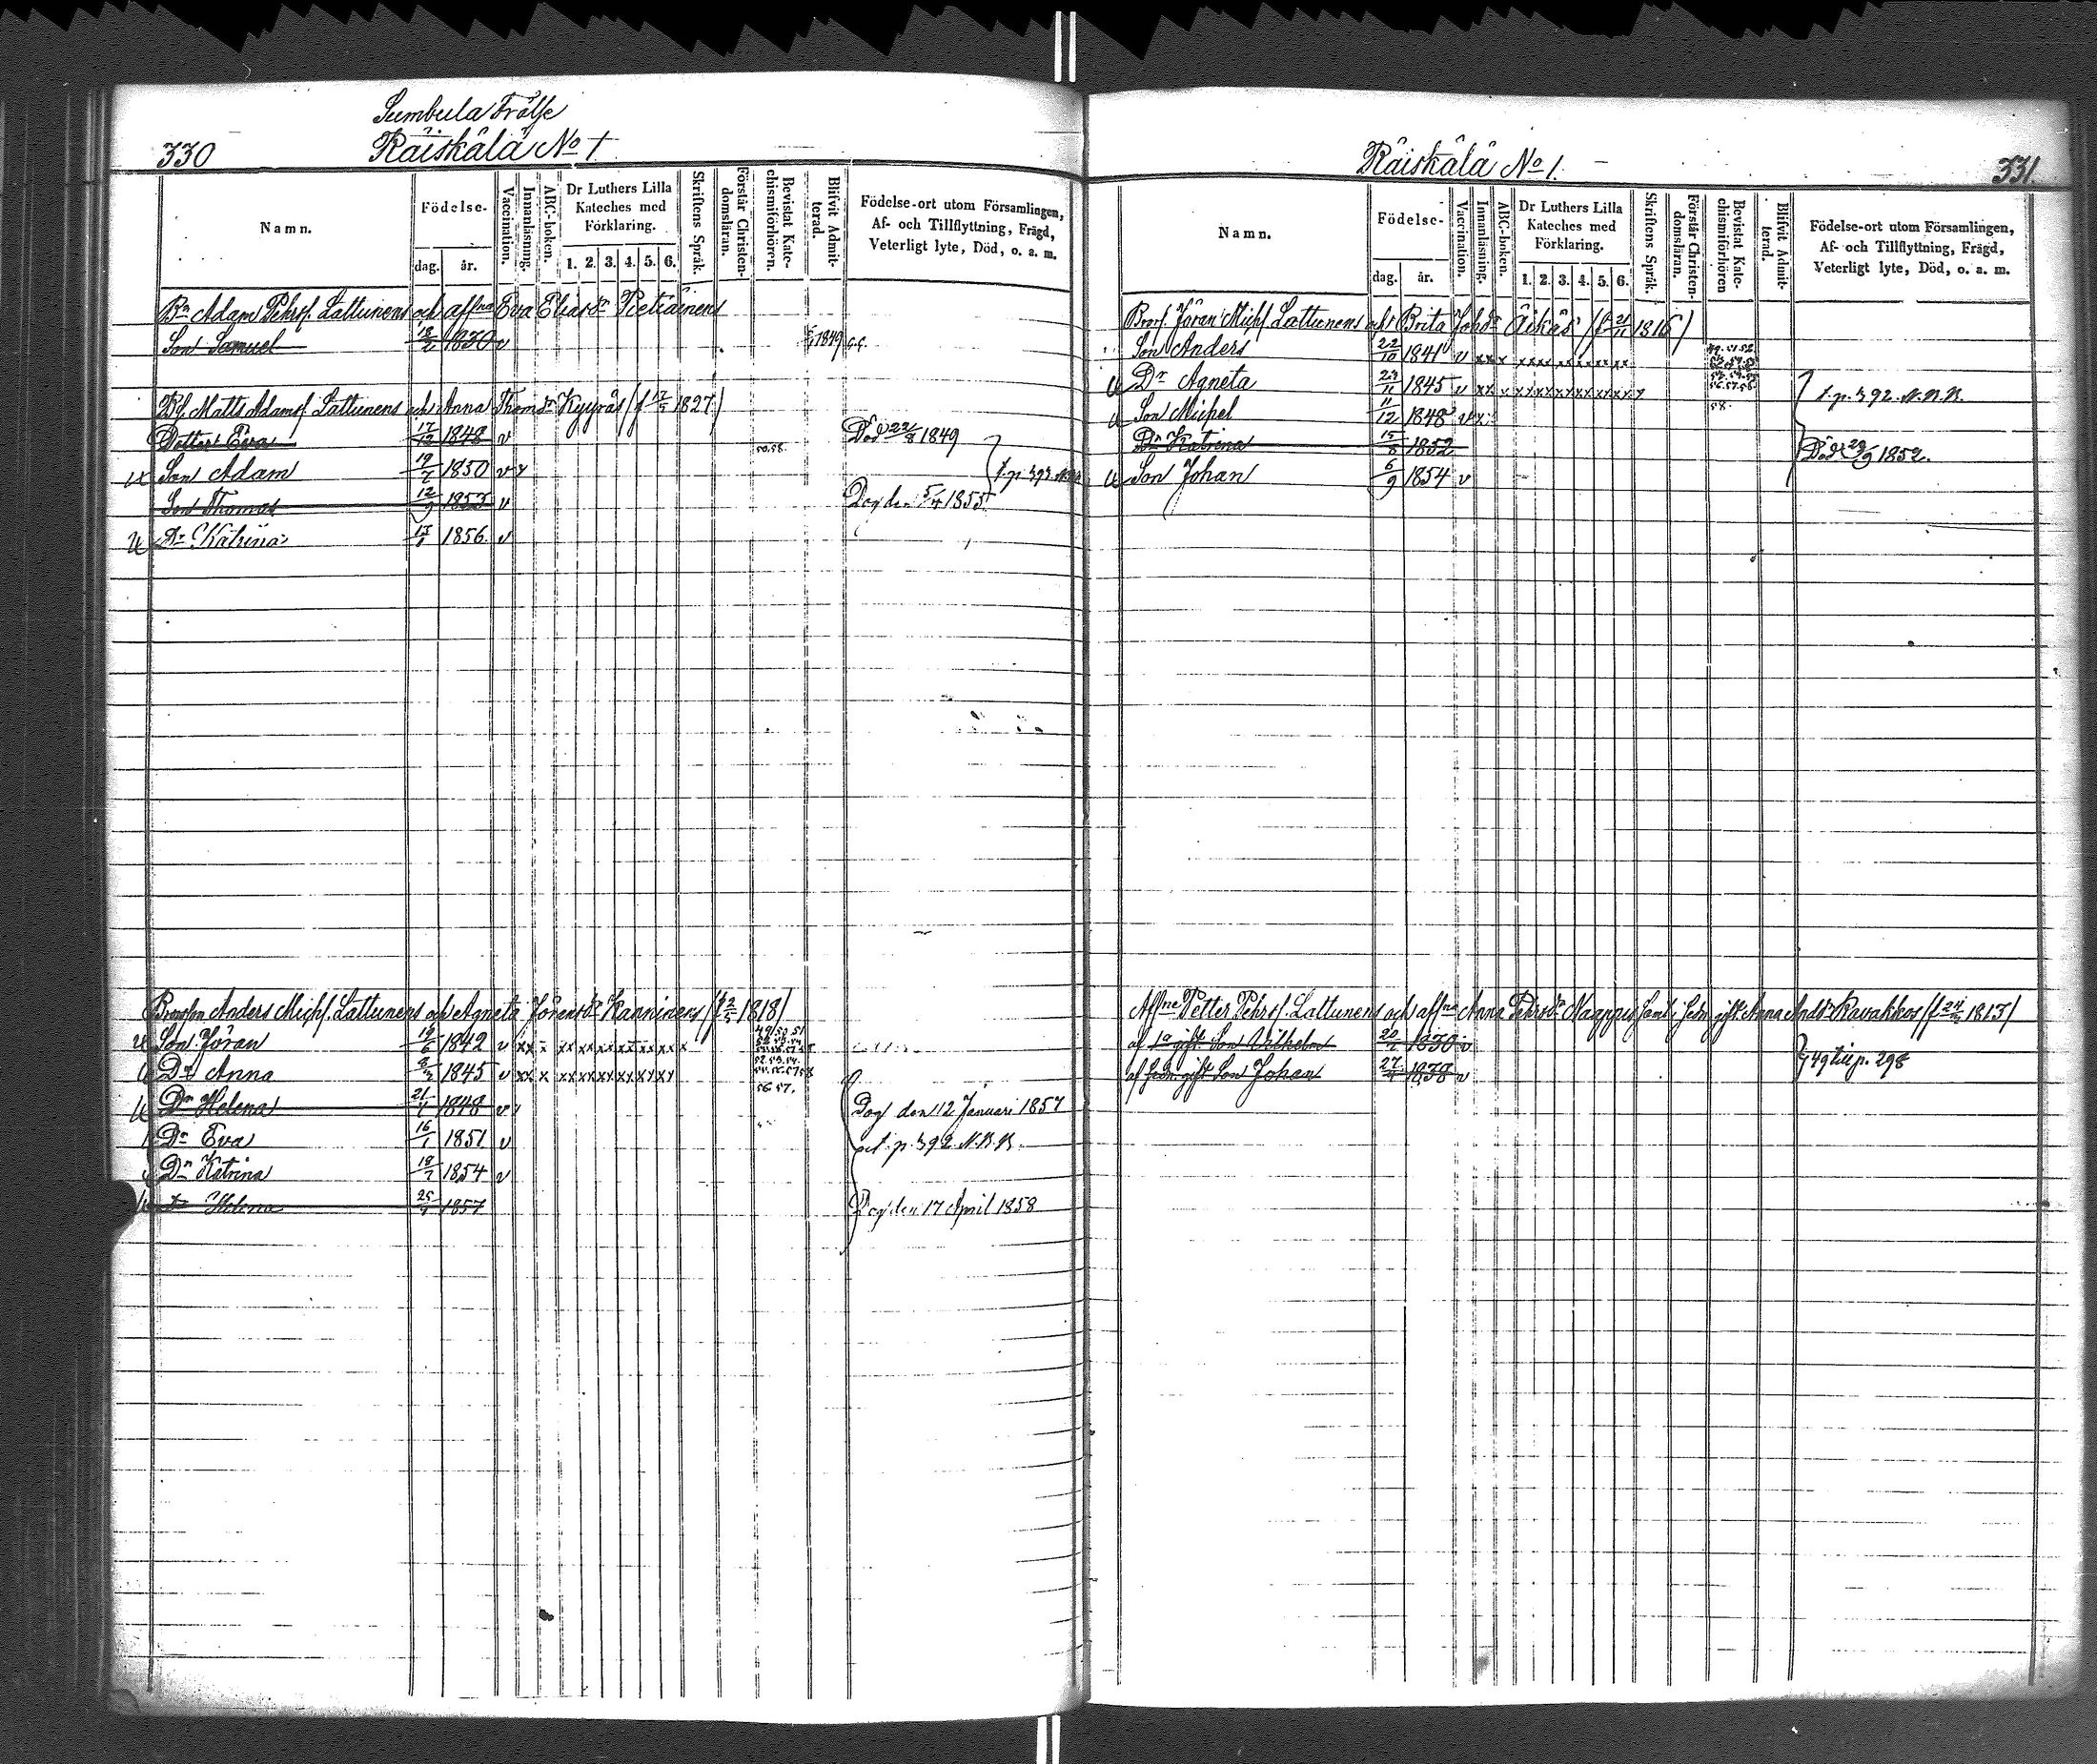 Sumbula Frälse
330 Räiskälä No 1
Namn. Födelse- dag. år. Vaccination. Innanläsning. ABC-boken. Dr Luthers Lilla Kateches med Förklaring. 1. 2. 3. 4. 5. 6. Skriftens Språk. Förstår Christen-domsläran. Bevistat Kate-chismiförhören. Blifvit Admit-terad. Födelse-ort utom Församlingen, Af- och Tillflyttning, Frägd, Veterligt lyte, Död, o. a. m.
Bn Adam Pehrs. Lattunens och affna Eva Eliasdr Pietiäinens
Son Samuel 18/2 1830 v 1849
Bs. Matts Adams. Lattunens och Anna Thomsdr Kyyräs (f 1827)
Dotter Eva 17/12 1848 v Död 22/8 1849
Son Adam 19/7 1850 v 50.58.
Son Thomas 12/9 1853 v Dog den 5/4 1855
Dr Katrina 1856 v
Brorson Anders Michs. Lattunens och Agneta Jöransdr Kanninens (f 2/5 1818)
Son Jöran 19/6 1842 v xx x xx xx xx xx xx xx x 49.50.51
Dr Anna 1845 v xx x xx xx xx xx xx xx
Dr Helena 21/4 1848 v 56 57. Dog den 12 Januari 1857
Dr Eva 16/1 1851 v p. 392 N.B.B.
Dr Katrina 19/7 1854 v
Dr Helena 25/9 1857 Dog den 17 April 1858
Räiskälä No 1. 331.
Namn. Födelse- dag. år. Vaccination. Innanläsning. ABC-boken. Dr Luthers Lilla Kateches med Förklaring. 1. 2. 3. 4. 5. 6. Skriftens Språk. Förstår Christen-domsläran. Bevistat Kate-chismiförhören Blifvit Admit-terad. Födelse-ort utom Församlingen, Af- och Tillflyttning, Frägd, Veterligt lyte, Död, o. a. m.
Brors. Jöran Michs. Lattunens och Brita Johsdr Äikäs (f 21/11 1816)
Son Anders 22/10 1841 v xx x xx xx xx xx xx xx
Dr Agneta 23/11 1845 v xx x xx xx xx xx xx xx
Son Michel 11/12 1848 v x 58. p. 392. N.B.B.
Dr Katrina 15/8 1852 Död 29/9 1852.
Son Johan 6/9 1854 v
Affne Petter Pehrs. Lattunens och affna Anna Pehrsdr Nappus samt i sedn. gift. Anna Andsdr Kavakkos (f 24 1813)
af 1a gift. Son Vilhelm 1830 v
af sedn. gift Son Johan 27 1838 v 49 till p. 298